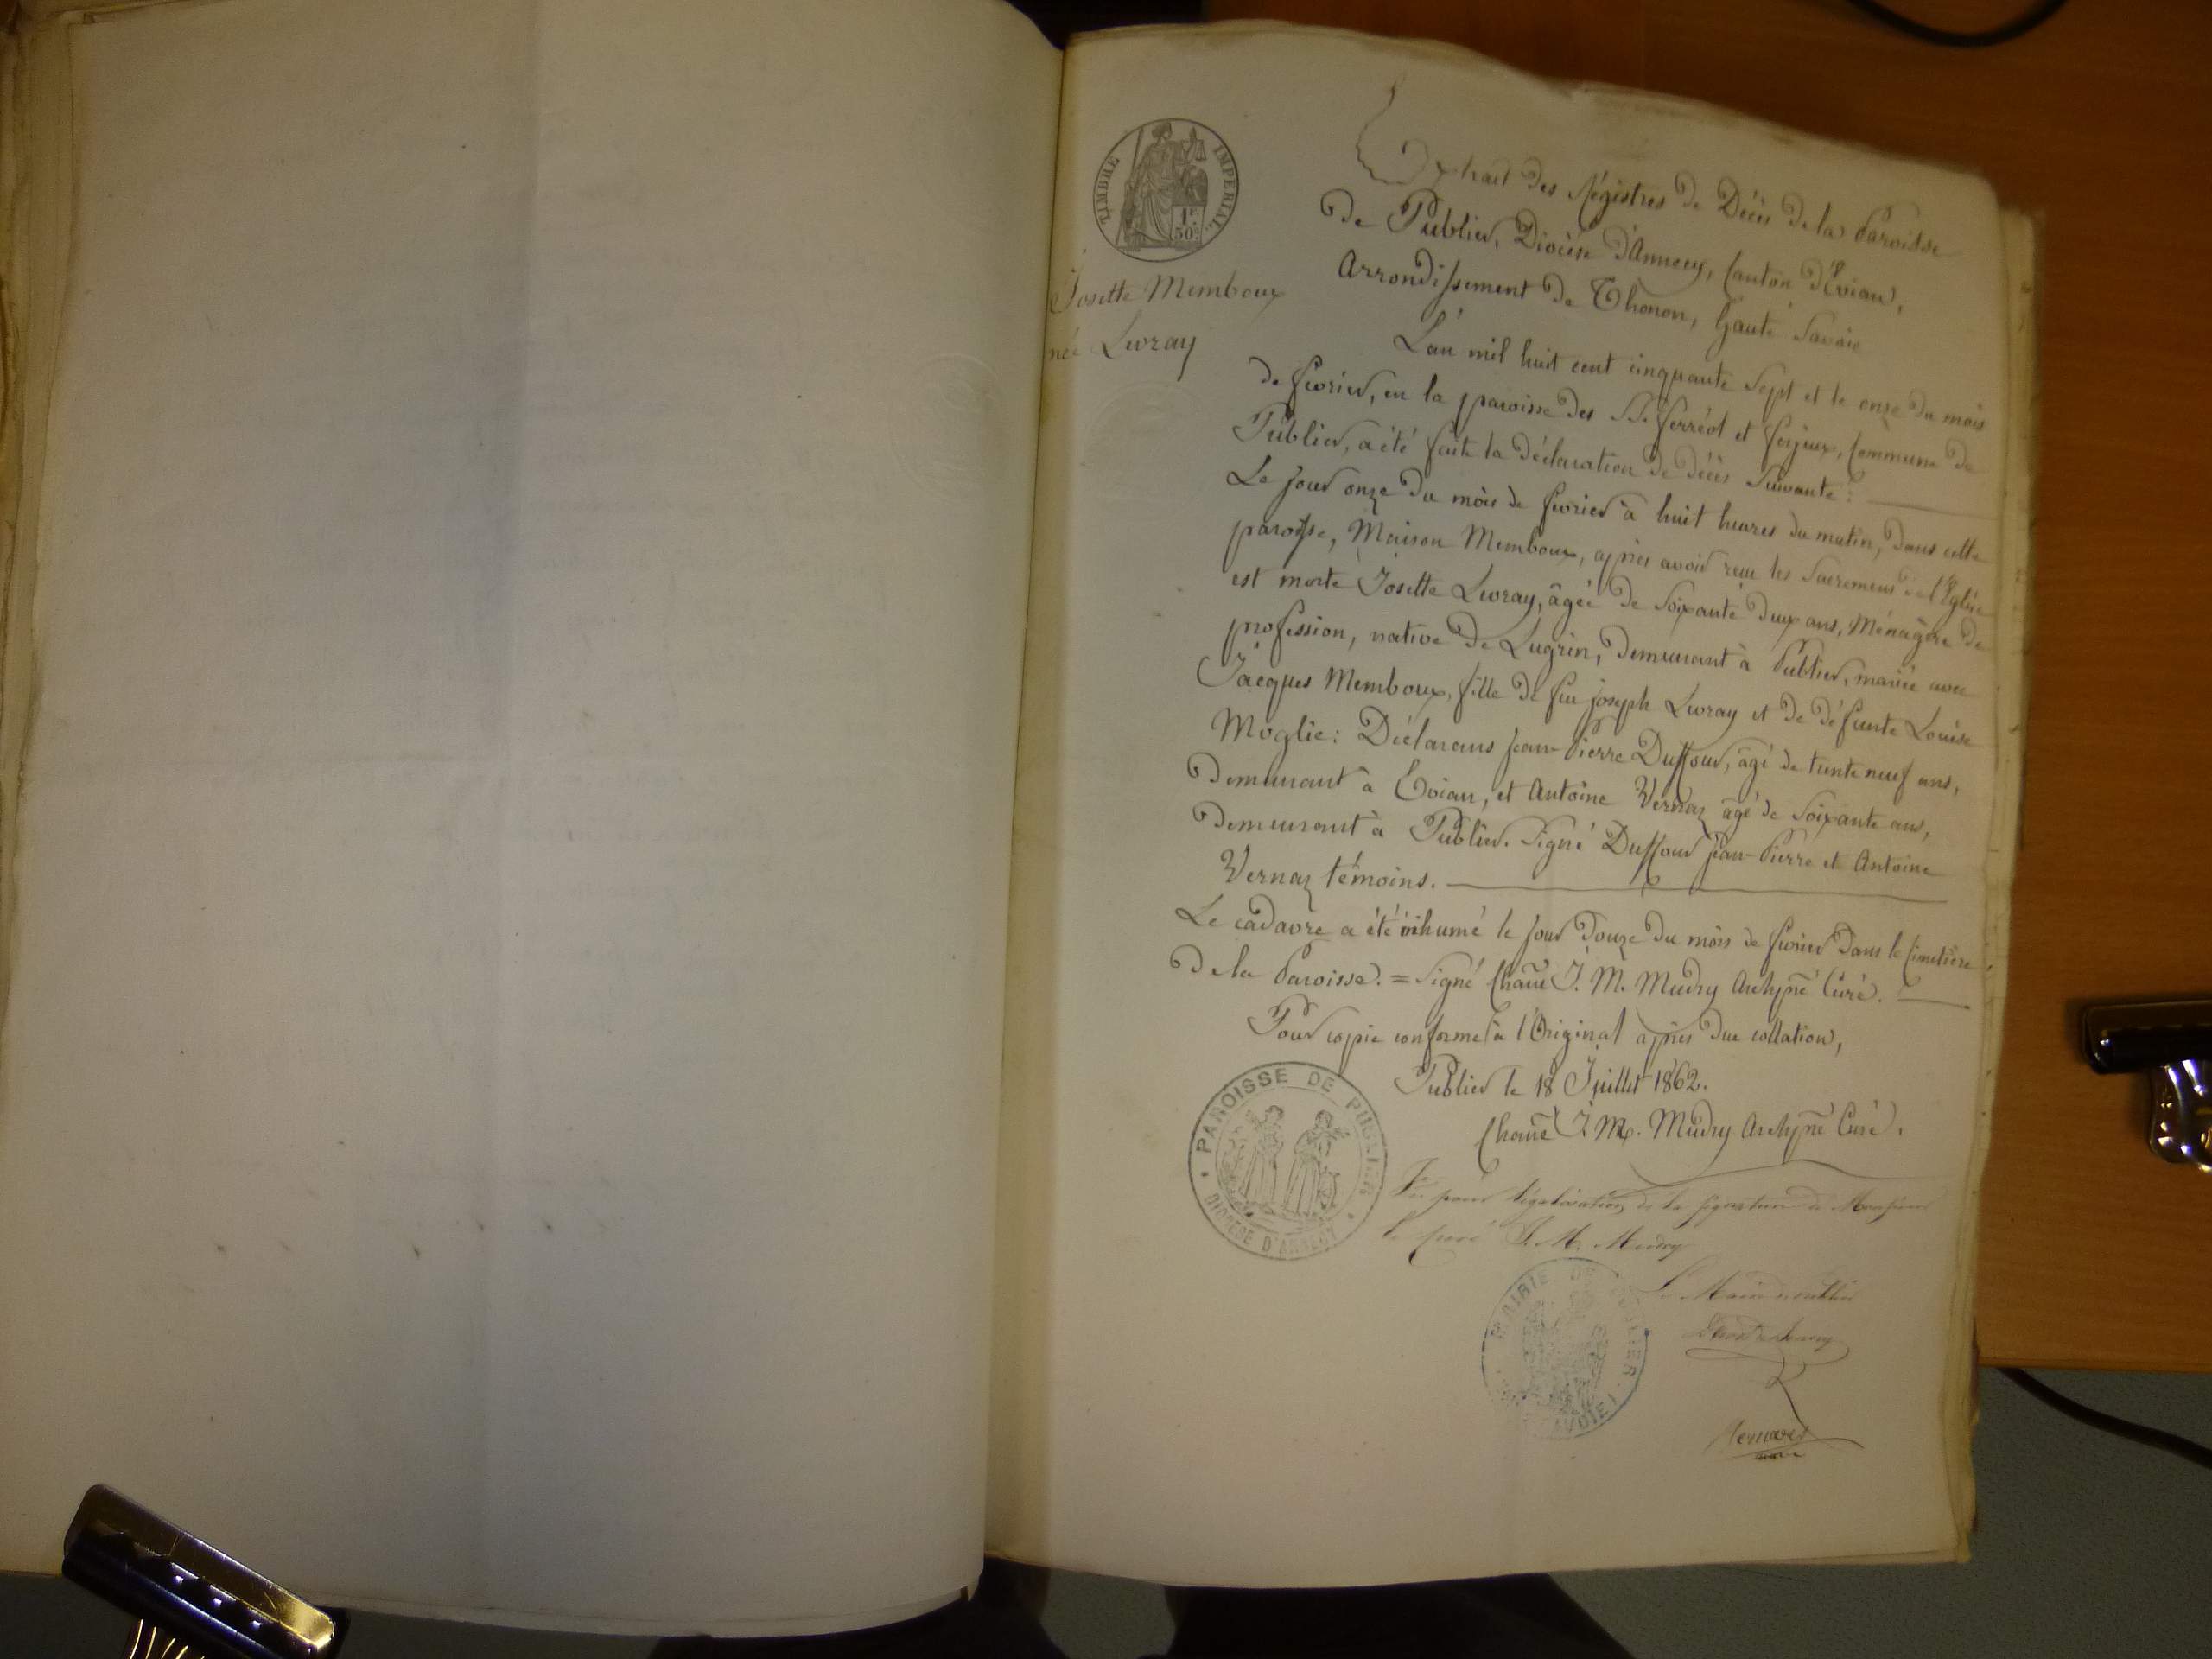 TIMBRE IMPERIAL
1F. 50C.
Josette Memboux
née Levray
Extrait des Régistres de Décès de la Paroisse
de Publier, Diocèse d'Annecy, Canton d'Évian,
Arrondissement de Thonon, haute Savoie
L'an mil huit cent cinquante Sept et le onze du mois
de fevrier, en la paroisse des SS. ferréol et ferjeux, Commune de
Publier, a été faite la déclaration de décès Suivante :
Le jour onze du mois de fevrier à huit heures du matin, dans cette
paroisse, Maison Memboux, après avoir reçu les Sacremens de l'Eglise
est morte Josette Levray, âgée de Soixante deux ans, Ménagère de
profession, native de Lugrin, demeurant à Publier, mariée avec
Jacques Memboux, fille de feu joseph Levray et de défunte Louise
Moglie : Déclarans jean-Pierre Duffour, âgé de trente neuf ans,
demeurant à Evian, et Antoine Vernaz âgé de Soixante ans,
demeurant à Publier. Signé Duffour jean-Pierre et Antoine
Vernaz témoins.
Le cadavre a été inhumé le jour douze du mois de fevrier dans le Cimetière
de la Paroisse. = Signé Chane J. M. Mudry Archpré Curé.
Pour copie conforme à l'Original après due collation,
Publier le 18 Juillet 1862.
Chane J M. Mudry Archpré Curé.
PAROISSE DE PUBLIER
DIOCESE D'ANNECY
Vu pour légalisation de la signature de Monsieur
le curé J. M. Mudry
MAIRIE DE PUBLIER
SAVOIE
Le Maire